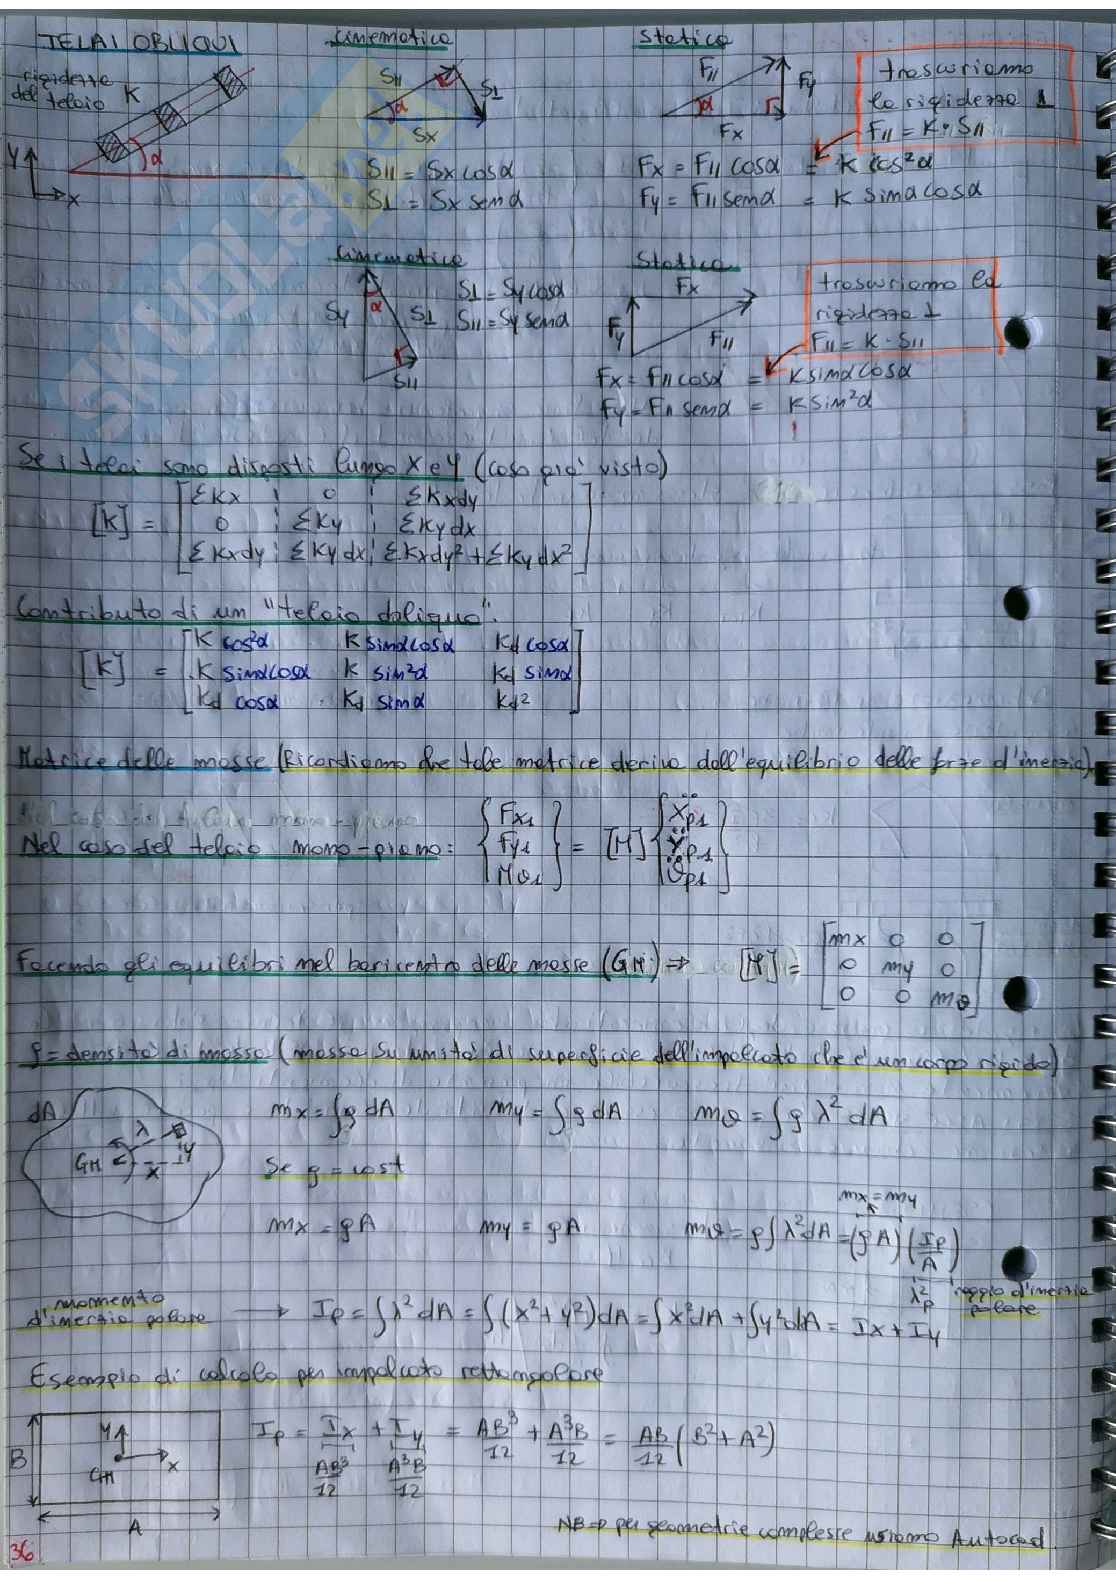 TELAI OBLIQUI
rigidezza
del telaio K
α
Y
X
Cinematica
S//
S⊥
α
Sx
S// = Sx cosα
S⊥ = Sx senα
Statica
F//
Fy
α
Fx
trascuriamo
la rigidezza ⊥
F// = K · S//
Fx = F// cosα = K cos²α
Fy = F// senα = K sinαcosα
Cinematica
Sy
α
S⊥
S//
S⊥ = Sy cosα
S// = Sy senα
Statica
Fx
Fy
F//
trascuriamo la
rigidezza ⊥
F// = K · S//
Fx = F// cosα = K sinαcosα
Fy = F// senα = K sin²α
Se i telai sono disposti lungo X e Y (caso già visto)
[K] = [ΣKx 0 ΣKxdy
0 ΣKy ΣKydx
ΣKxdy ΣKydx ΣKxdy² + ΣKydx²]
Contributo di un "telaio obliquo":
[K] = [K cos²α K sinαcosα Kd cosα
K sinαcosα K sin²α Kd sinα
Kd cosα Kd sinα Kd²]
Matrice delle masse (Ricordiamo che tale matrice deriva dall'equilibrio delle forze d'inerzia)
Nel caso del telaio mono-piano: {Fx1 Fy1 Mθ1} = [M] {Ẍp1 Ÿp1 θ̈p1}
Facendo gli equilibri nel baricentro delle masse (GM) => [M] = [mx 0 0
0 my 0
0 0 mθ]
ρ = densità di massa (massa su unità di superficie dell'impalcato che è un corpo rigido)
dA
λ
GM
x
y
mx = ∫ρ dA my = ∫ρ dA mθ = ∫ρ λ² dA
Se ρ = cost
mx = my
mx = ρA my = ρA mθ = ρ∫λ²dA = (ρA) (Ip/A)
λp² raggio d'inerzia
polare
momento
d'inerzia polare → Ip = ∫λ² dA = ∫(x² + y²)dA = ∫x²dA + ∫y²dA = Ix + Iy
Esempio di calcolo per impalcato rettangolare
B
Y
GM
x
A
Ip = Ix + Iy = AB³/12 + A³B/12 = AB/12 (B² + A²)
AB³/12 A³B/12
NB => per geometrie complesse usiamo Autocad
36
SKUOLA.net